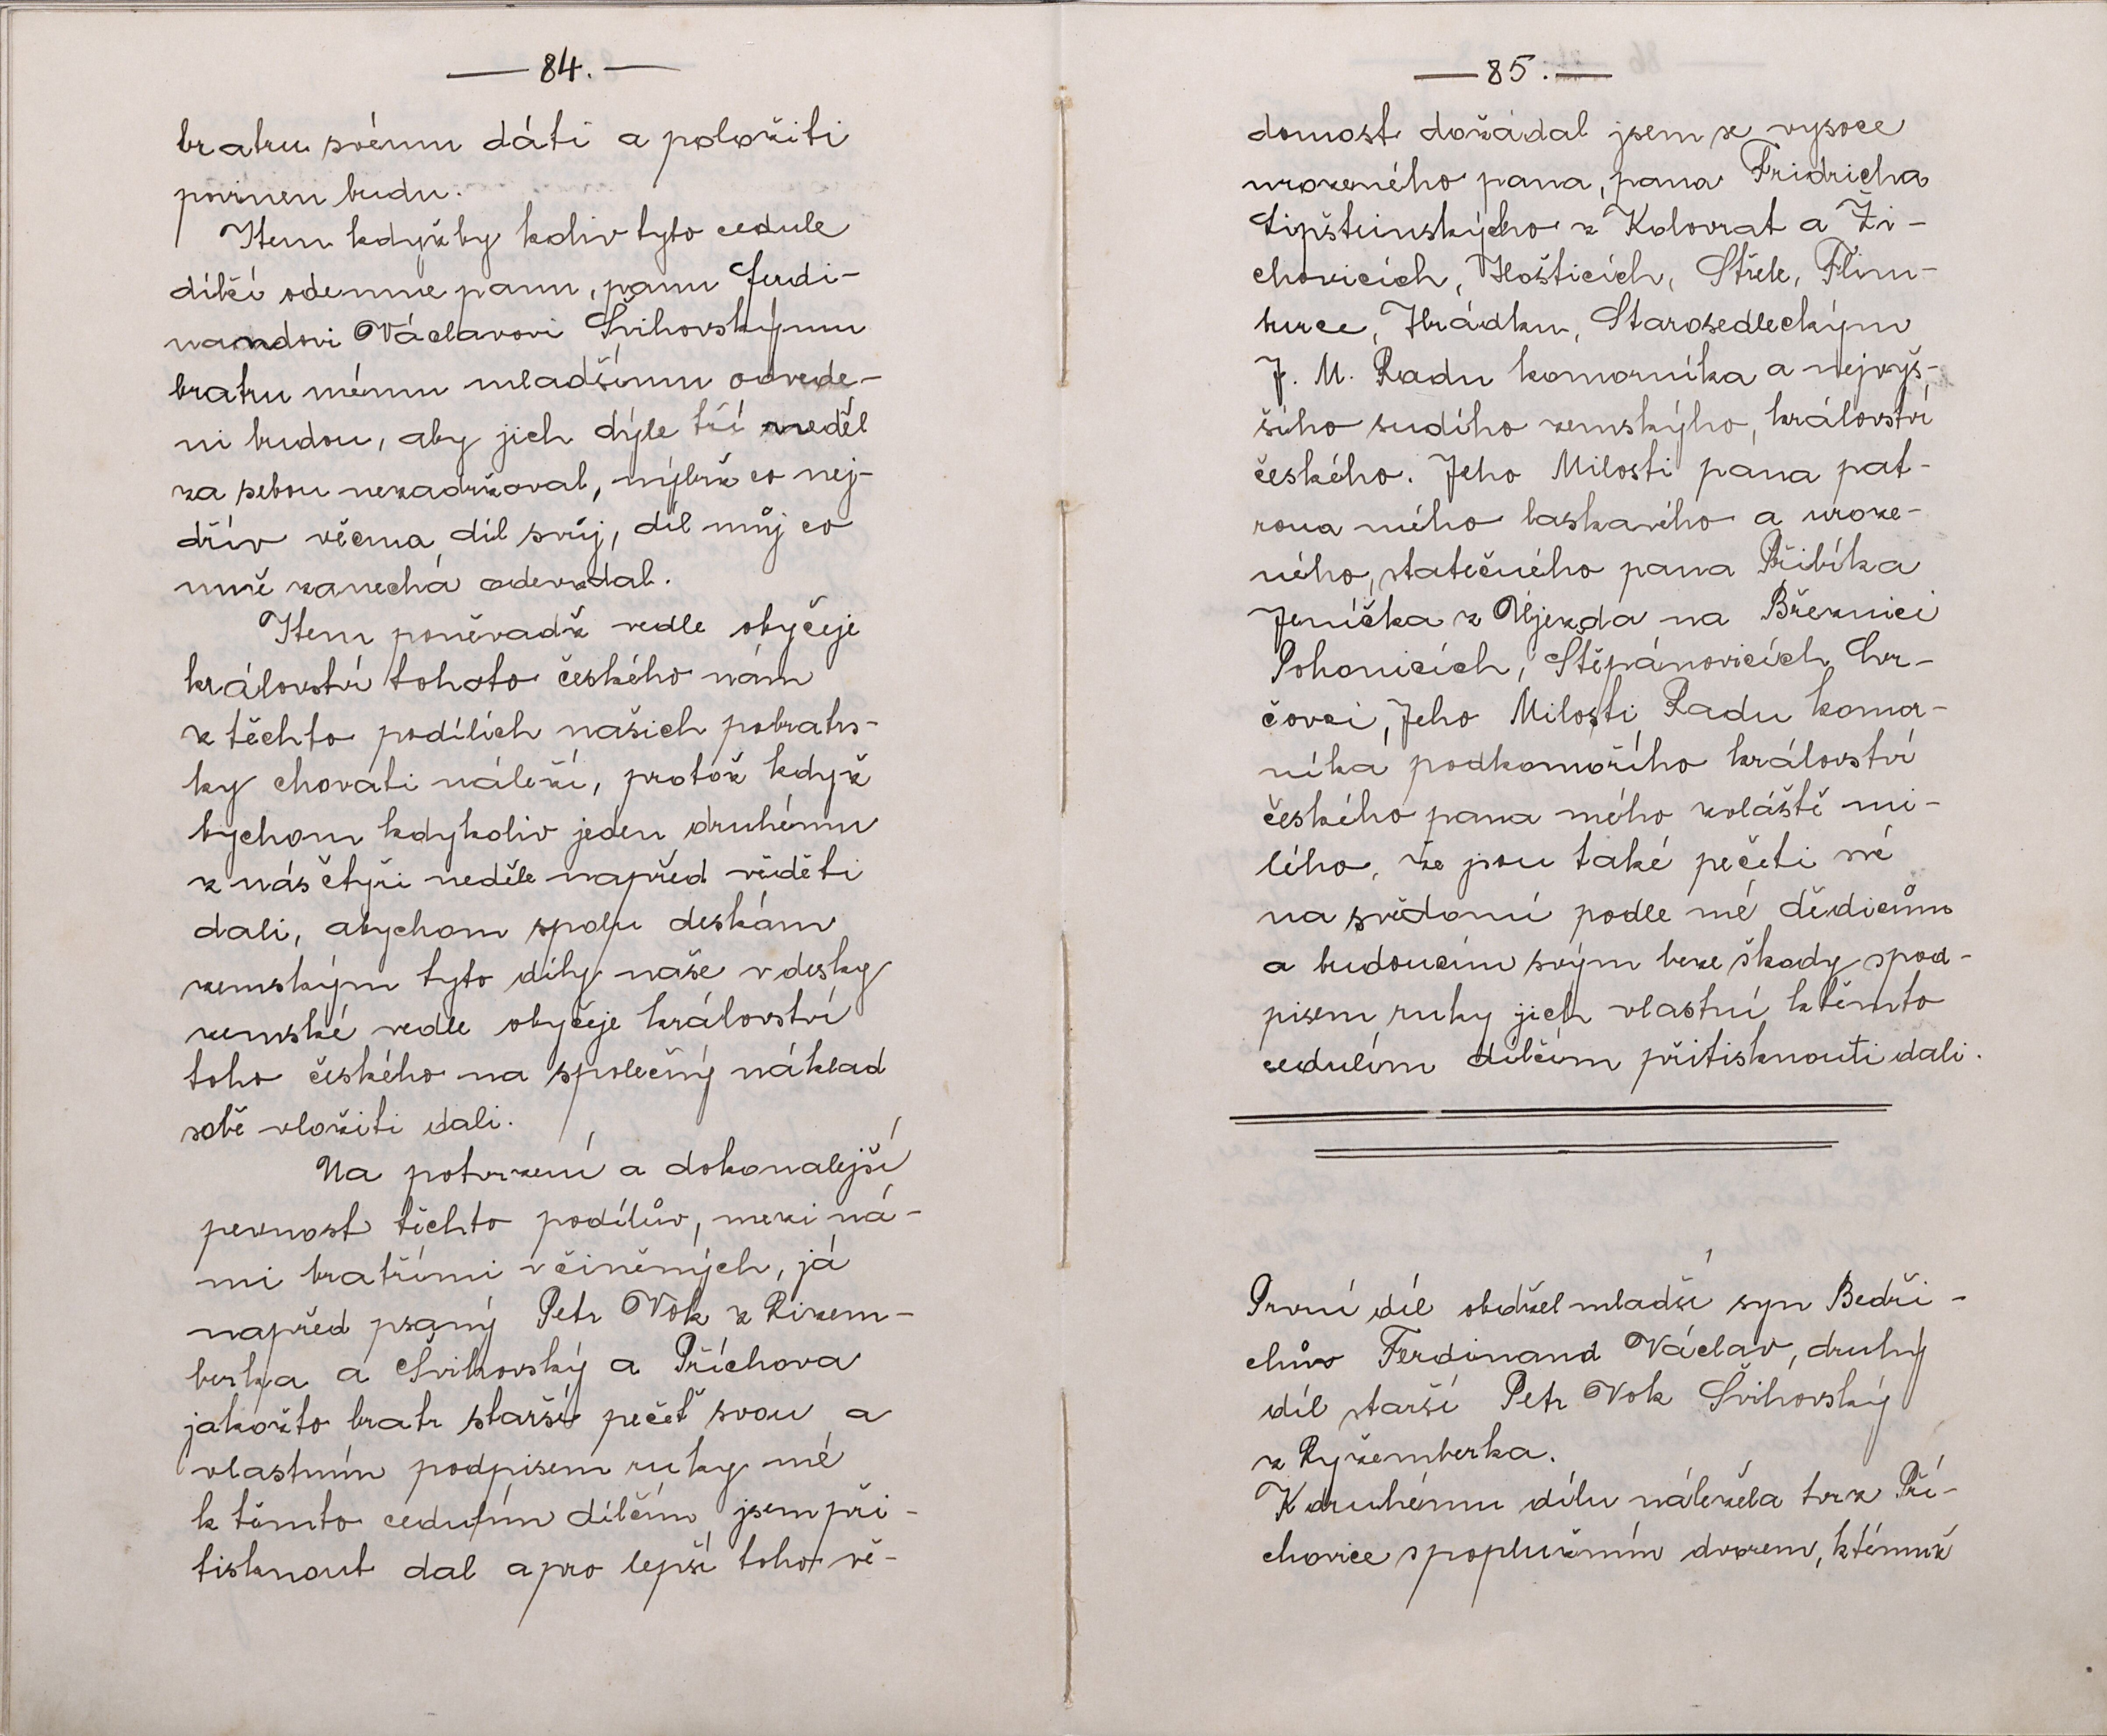 — 84. —
bratru svému dáti a položiti
povinen budu.
Item kdyžby koliv tyto cedule
dílčí odemne panu, panu Ferdi-
nandovi Václavovi Švihovskýmu
bratru mému mladšímu odvede-
ni budou, aby jich dýle tří neděl
za sebou nezadržoval, nýbrž co nej-
dřív věcma díl svůj, díl můj co
mně zanechá odevzdal.
Item poněvadž vedle obyčeje
království tohoto českého nám
z těchto podílích našich pobratrs-
ky chovati náleží, protož když
bychom kdykoliv jeden druhému
z nás čtyři neděle napřed věděti
dali, abychom spolu deskám
zemským tyto díly naše v desky
zemské vedle obyčeje království
toho českého na společný náklad
sobě vložiti dali.
Na potvrzení a dokonalejší
pevnost těchto podílův, mezi ná-
mi bratřími včiněných, já
napřed psaný Petr Vok z Rizem-
berka a Švihovský a Příchova
jakožto bratr starší pečeť svou a
vlastním podpisem ruky mé
k těmto cedulím dílčím jsem při-
tisknout dal a pro lepší toho vě-
— 85. —
domost dožádal jsem se vysoce
urozeného pana, pana Fridricha
Lipšteinskýho z Kolovrat a Ži-
chovicích, Hošticích, Střele, Flim-
burce, Hrádku, Starosedleckým
J. M. Radu komorníka a nejvýš-
šího sudího zemskýho, království
českého. Jeho Milosti pana pat-
rona mého laskavého a uroze-
ného, statečného pana Přibíka
Jeníčka z Újezda na Březnici
Pohonicích, Štěpánovicích Svr-
čovci, Jeho Milosti Radu komor-
níka podkomořího království
českého pana mého zoláště mi-
lého, že jsou také pečeti své
na svědomí podle mé dědicům
a budoucím svým beze škody spod-
pisem ruky jich vlastní k těmto
cedulím dílčím přitisknouti dali.
První díl obdržel mladší syn Bedři-
chův Ferdinand Václav, druhý
díl starší Petr Vok Švihovský
z Ryžemberka.
K druhému dílu náležela tvrz Pří-
chovice s poplužním dvorem, k témuž